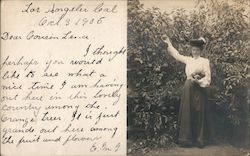 Los Angeles Cal
Oct 3 1905
Dear Cousin
I thought
perhaps you would
like to see what a
nice time I am having
out here in this lovely
country among the
orange trees. It is just
grand out here among
the fruit and flowers.